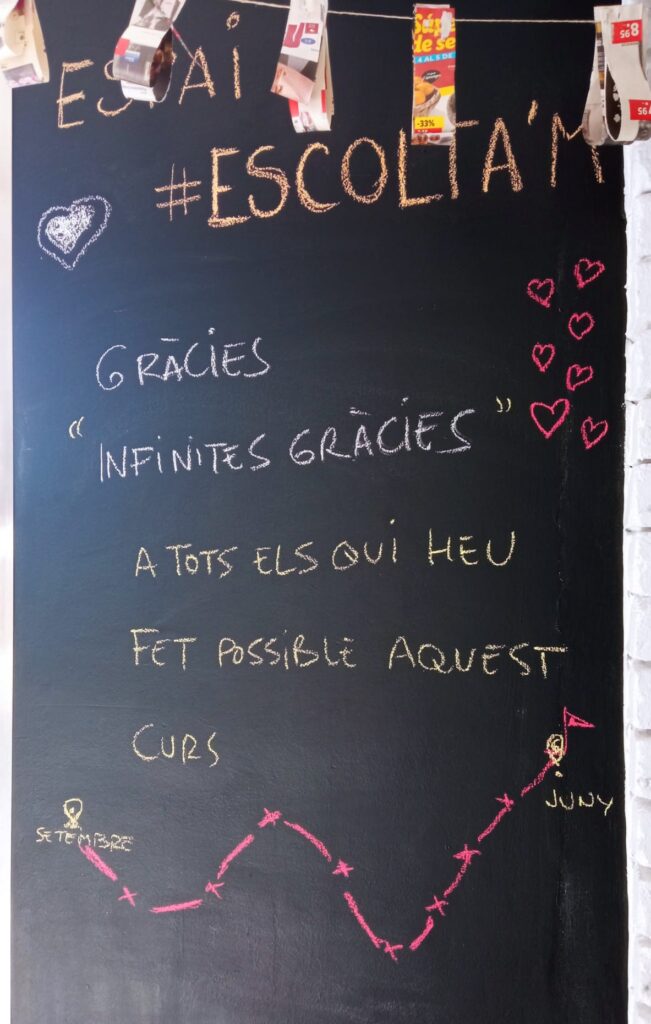 ESPAI
#ESCOLTA'M
GRÀCIES
"INFINITES GRÀCIES"
A TOTS ELS QUI HEU
FET POSSIBLE AQUEST
CURS
SETEMBRE
JUNY
4 AL 5 DE
-33%